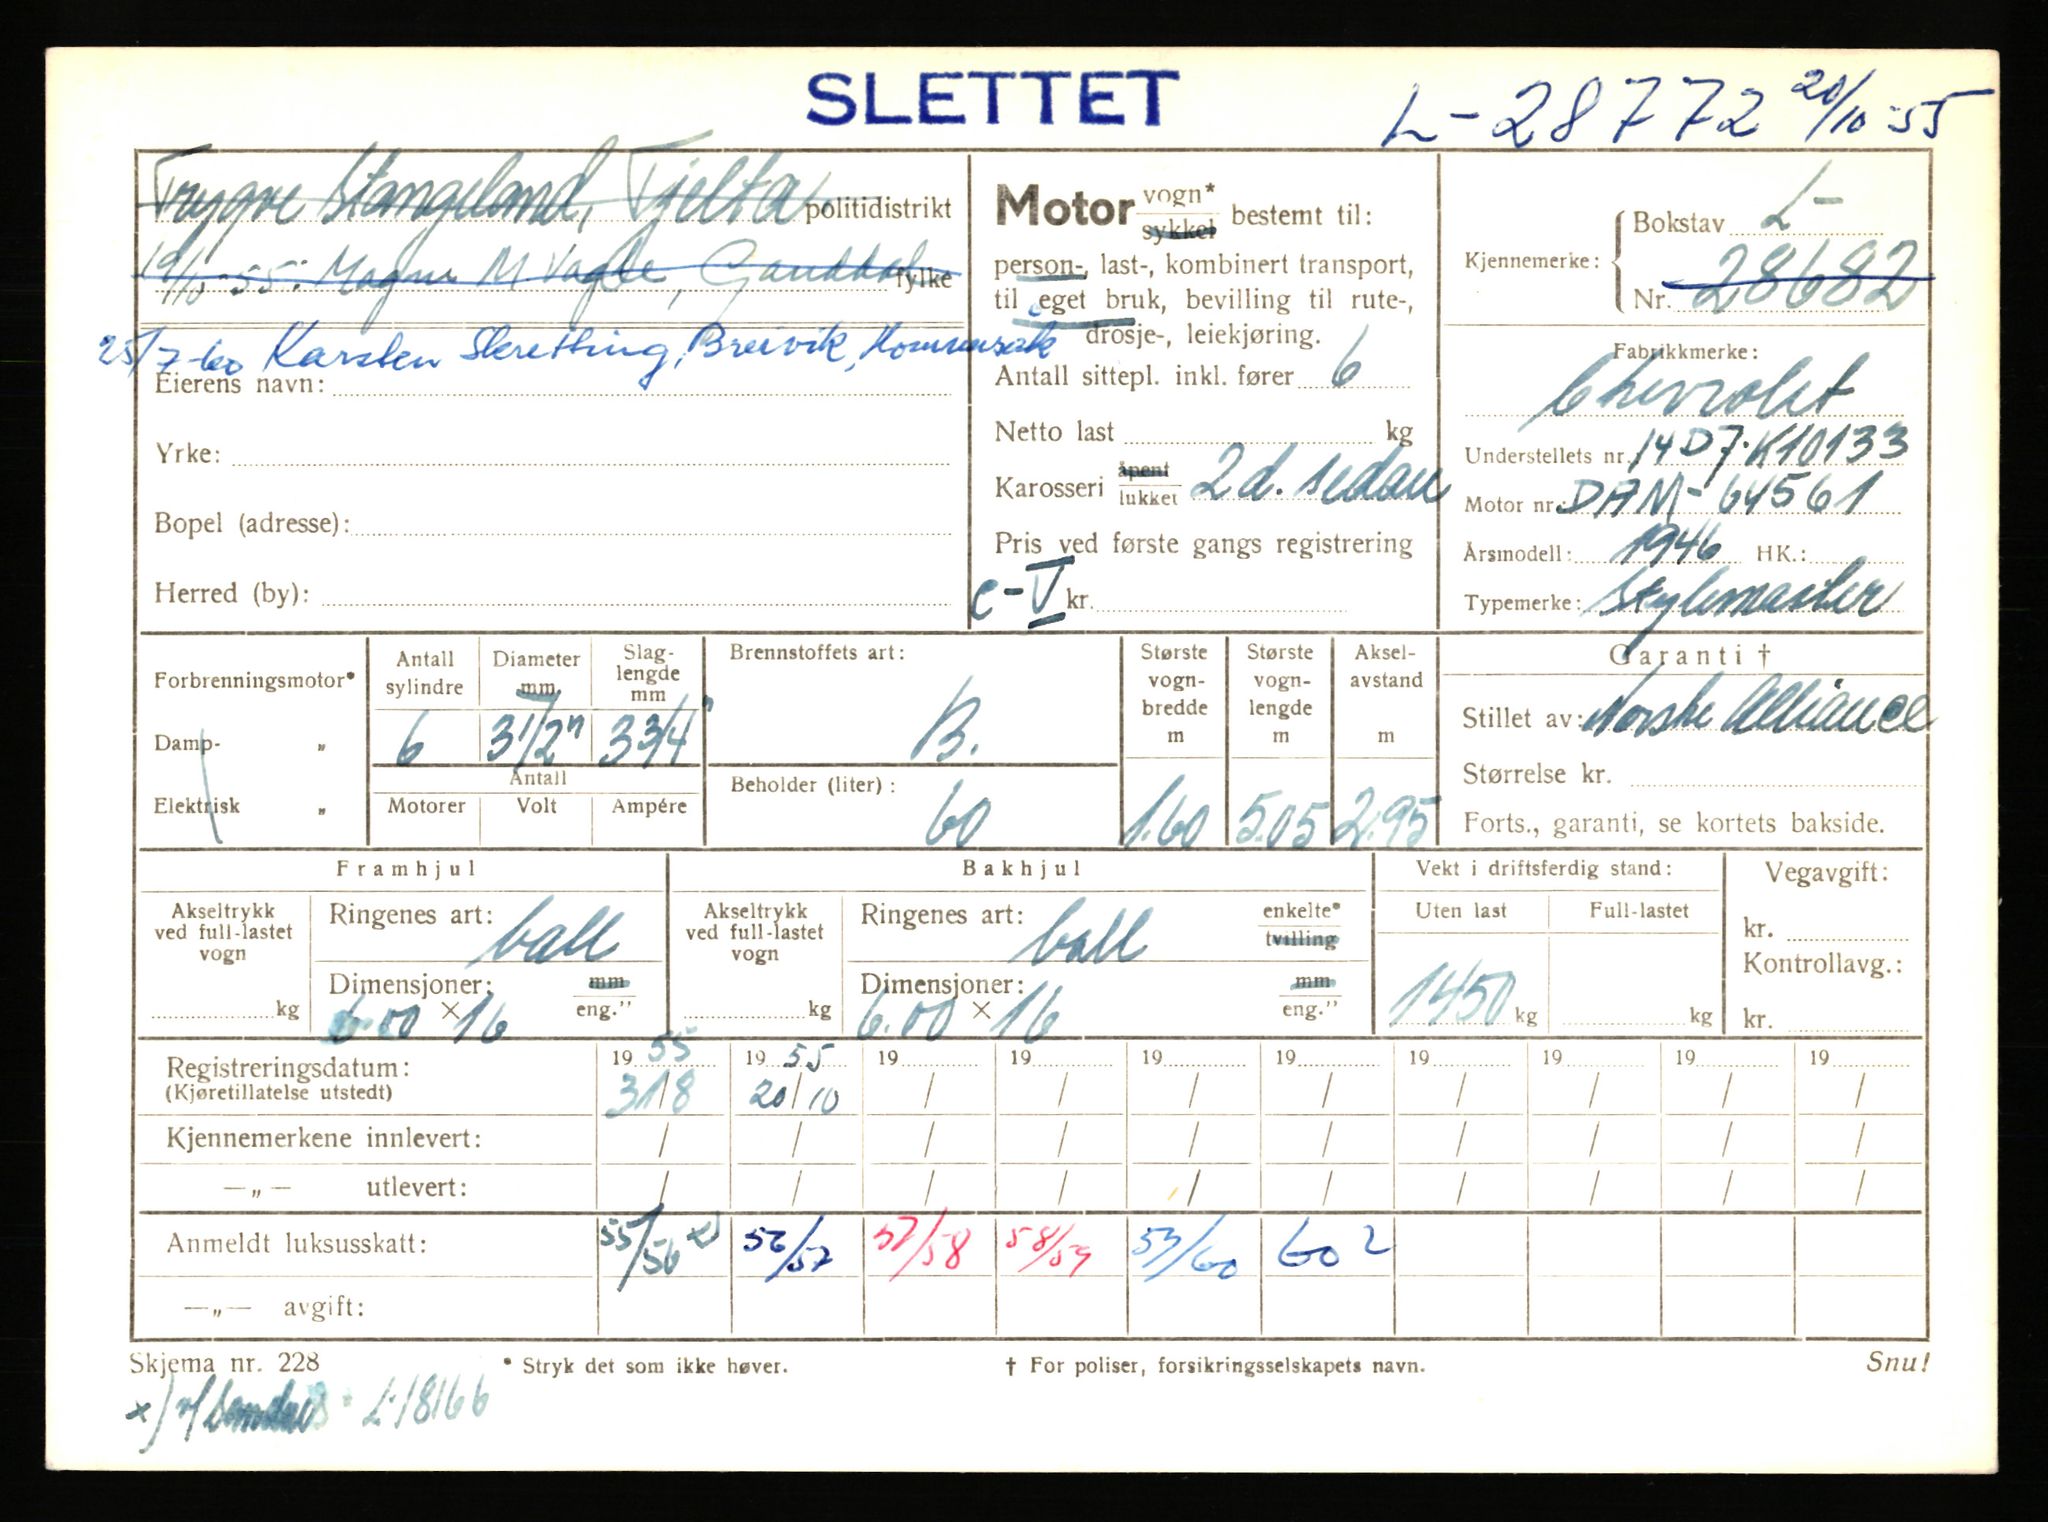 SLETTET
L-28772 20/10-55
Trygve Stangeland, Tjelta politidistrikt
19/10-55: Magne M Vagle, Gandal fylke
25/7-60 Karsten Skretting, Breivik, Hommersåk
Eierens navn:
Yrke:
Bopel (adresse):
Herred (by):
Motor vogn* sykkel bestemt til:
person-, last-, kombinert transport,
til eget bruk, bevilling til rute-,
drosje-, leiekjøring.
Antall sittepl. inkl. fører 6
Netto last kg
Karosseri åpent lukket 2 d. sedan
Pris ved første gangs registrering
c-V kr.
Kjennemerke: Bokstav L-
Nr. 28682
Fabrikkmerke:
Chevrolet
Understellets nr. 14D7-K10133
Motor nr.: DAM-64561
Årsmodell: 1946 HK.:
Typemerke: Stylemaster
Forbrenningsmotor*
Damp- „
Elektrisk „
Antall sylindre 6
Diameter mm 3 1/2"
Slag-lengde mm 3 3/4"
Antall
Motorer Volt Ampére
Brennstoffets art: B.
Beholder (liter): 60
Største vogn-bredde m 1.60
Største vogn-lengde m 5.05
Aksel-avstand m 2.95
Garanti †
Stillet av: Norske Alliance
Størrelse kr.
Forts., garanti, se kortets bakside.
Framhjul
Akseltrykk ved full-lastet vogn kg
Ringenes art: ball
Dimensjoner: mm eng.”
6.00 × 16
Bakhjul
Akseltrykk ved full-lastet vogn kg
Ringenes art: ball enkelte* tvilling
Dimensjoner: mm eng.”
6.00 × 16
Vekt i driftsferdig stand:
Uten last Full-lastet
1450 kg kg
Vegavgift:
kr.
Kontrollavg.:
kr.
Registreringsdatum: 19 55 19 55 19 19 19 19 19 19 19 19
(Kjøretillatelse utstedt) 31/8 20/10 / / / / / / / /
Kjennemerkene innlevert: / / / / / / / / / /
—„— utlevert: / / / / / / / / / /
Anmeldt luksusskatt: 55/56 x) 56/57 57/58 58/59 59/60 60 2
—„— avgift:
Skjema nr. 228 * Stryk det som ikke høver. † For poliser, forsikringsselskapets navn. Snu!
x) L-18166